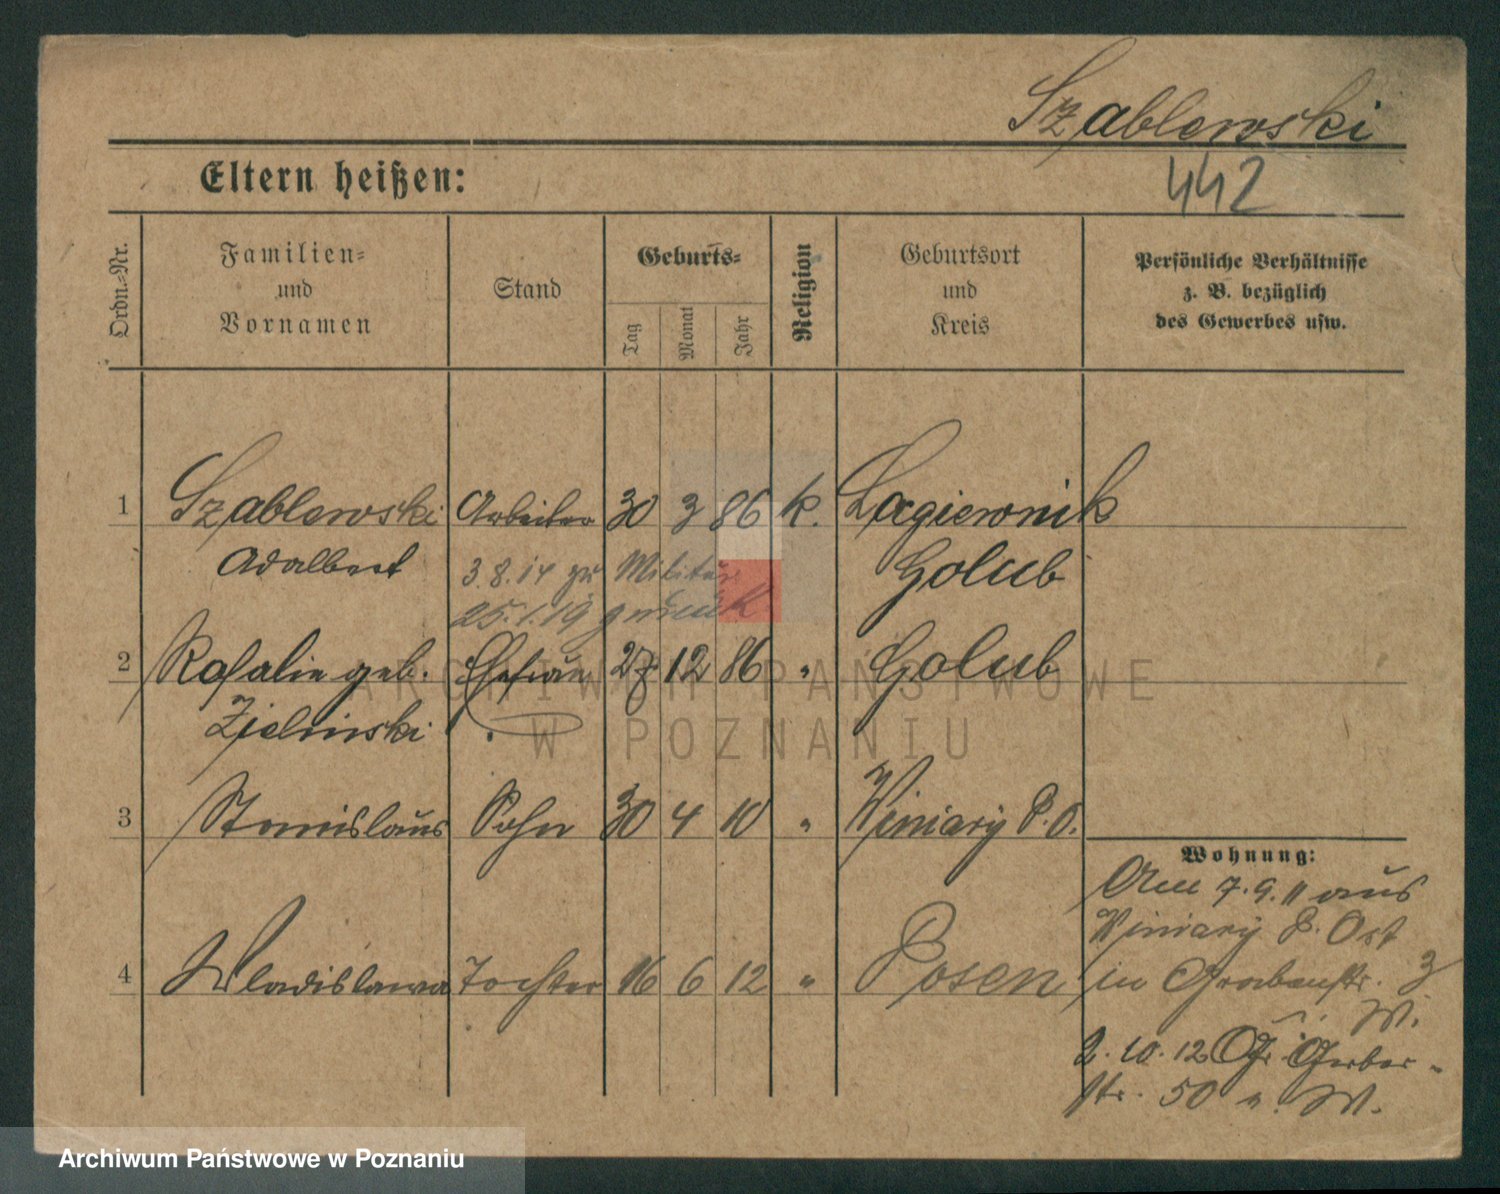 Szablewski
442
Eltern heißen:
Ordn.-Nr.
Familien-
und
Vornamen
Stand
Geburts-
Tag
Monat
Jahr
Religion
Geburtsort
und
Kreis
Persönliche Verhältnisse
z. B. bezüglich
des Gewerbes usw.
1 Szablewski Arbeiter 30 3 86 k. Lagiewnik
Adalbert 3.8.14 zu Militär Golub
25.1.19 zurück
2 Rosalie geb. Ehefrau 27 12 86 " Golub
Zielinski
3 Stanislaus Sohn 30 4 10 " Winiary P. O.
Wohnung:
Am 7.9.11 aus
Winiary P. Ost
4 Wladislawa Tochter 16 6 12 " Posen in Grabenstr. 3
W.
2.10.12 Gr. Gerber-
str. 50 W.
ARCHIWUM PAŃSTWOWE
W POZNANIU
Archiwum Państwowe w Poznaniu